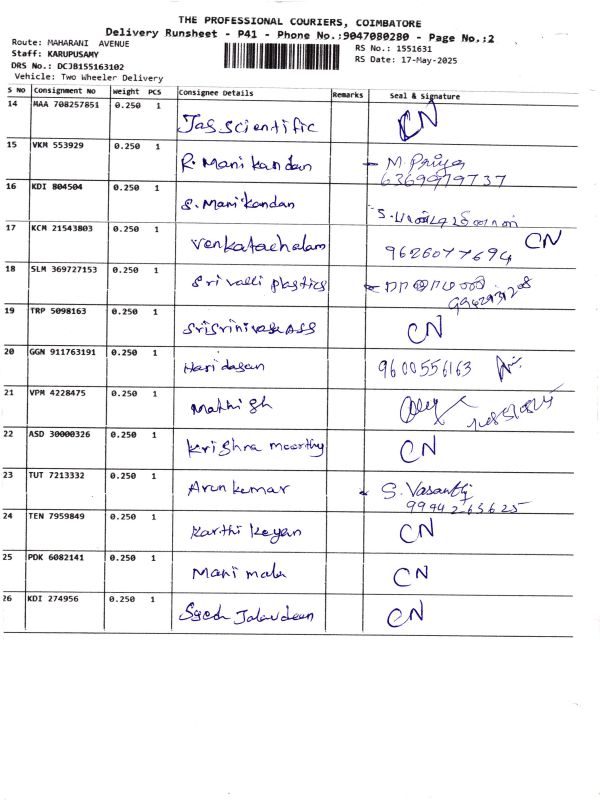 THE PROFESSIONAL COURIERS, COIMBATORE
Delivery Runsheet - P41 - Phone No.:9047080280 - Page No.:2
Route: MAHARANI AVENUE
Staff: KARUPUSAMY
DRS No.: DCJB155163102
Vehicle: Two Wheeler Delivery
RS No.: 1551631
RS Date: 17-May-2025
S NO Consignment No Weight PCS Consignee Details Remarks Seal & Signature
14 MAA 708257851 0.250 1 Jas scientific CN
15 VKM 553929 0.250 1 R. Manikandan M. Priya
6369979737
16 KDI 804504 0.250 1 S. Manikandan
17 KCM 21543803 0.250 1 Venkatachalam 9626077694 CN
18 SLM 369727153 0.250 1 Sri valli plastics
19 TRP 5098163 0.250 1 SriSrinivasa ASS CN
20 GGN 911763191 0.250 1 Haridasan 9600556163
21 VPM 4228475 0.250 1 Mathish
22 ASD 30000326 0.250 1 Krishna moorthy CN
23 TUT 7213332 0.250 1 Arunkumar S. Vasanthi
9994265625
24 TEN 7959849 0.250 1 Karthikeyan CN
25 PDK 6082141 0.250 1 Manimala CN
26 KDI 274956 0.250 1 Syed Jalaudeen CN